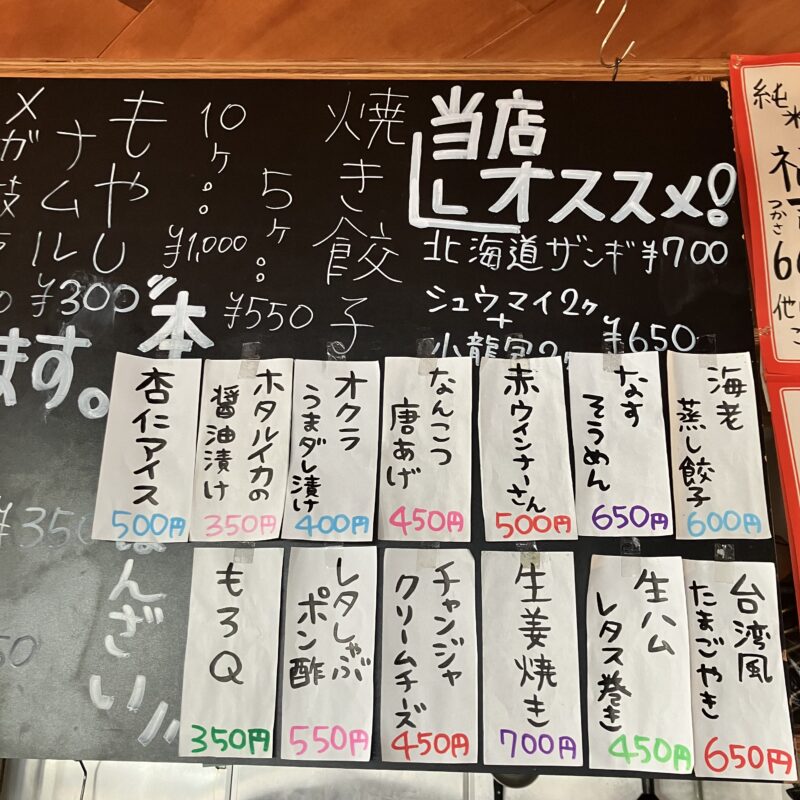 当店
オススメ!
北海道ザンギ ¥700
シュウマイ2ケ
+
¥650
焼き餃子
5ケ。¥550
10ケ。¥1,000
もやし
ナムル
¥300
メガ
ます。
¥350
海老
蒸し餃子
600円
なす
そうめん
650円
赤ウインナーさん
500円
なんこつ
唐あげ
450円
オクラ
うまダレ漬け
400円
ホタルイカの
醤油漬け
350円
杏仁アイス
500円
台湾風
たまごやき
650円
生ハム
レタス巻き
450円
生姜焼き
700円
チャンジャ
クリームチーズ
450円
レタしゃぶ
ポン酢
550円
もろQ
350円
純米
つかさ
他